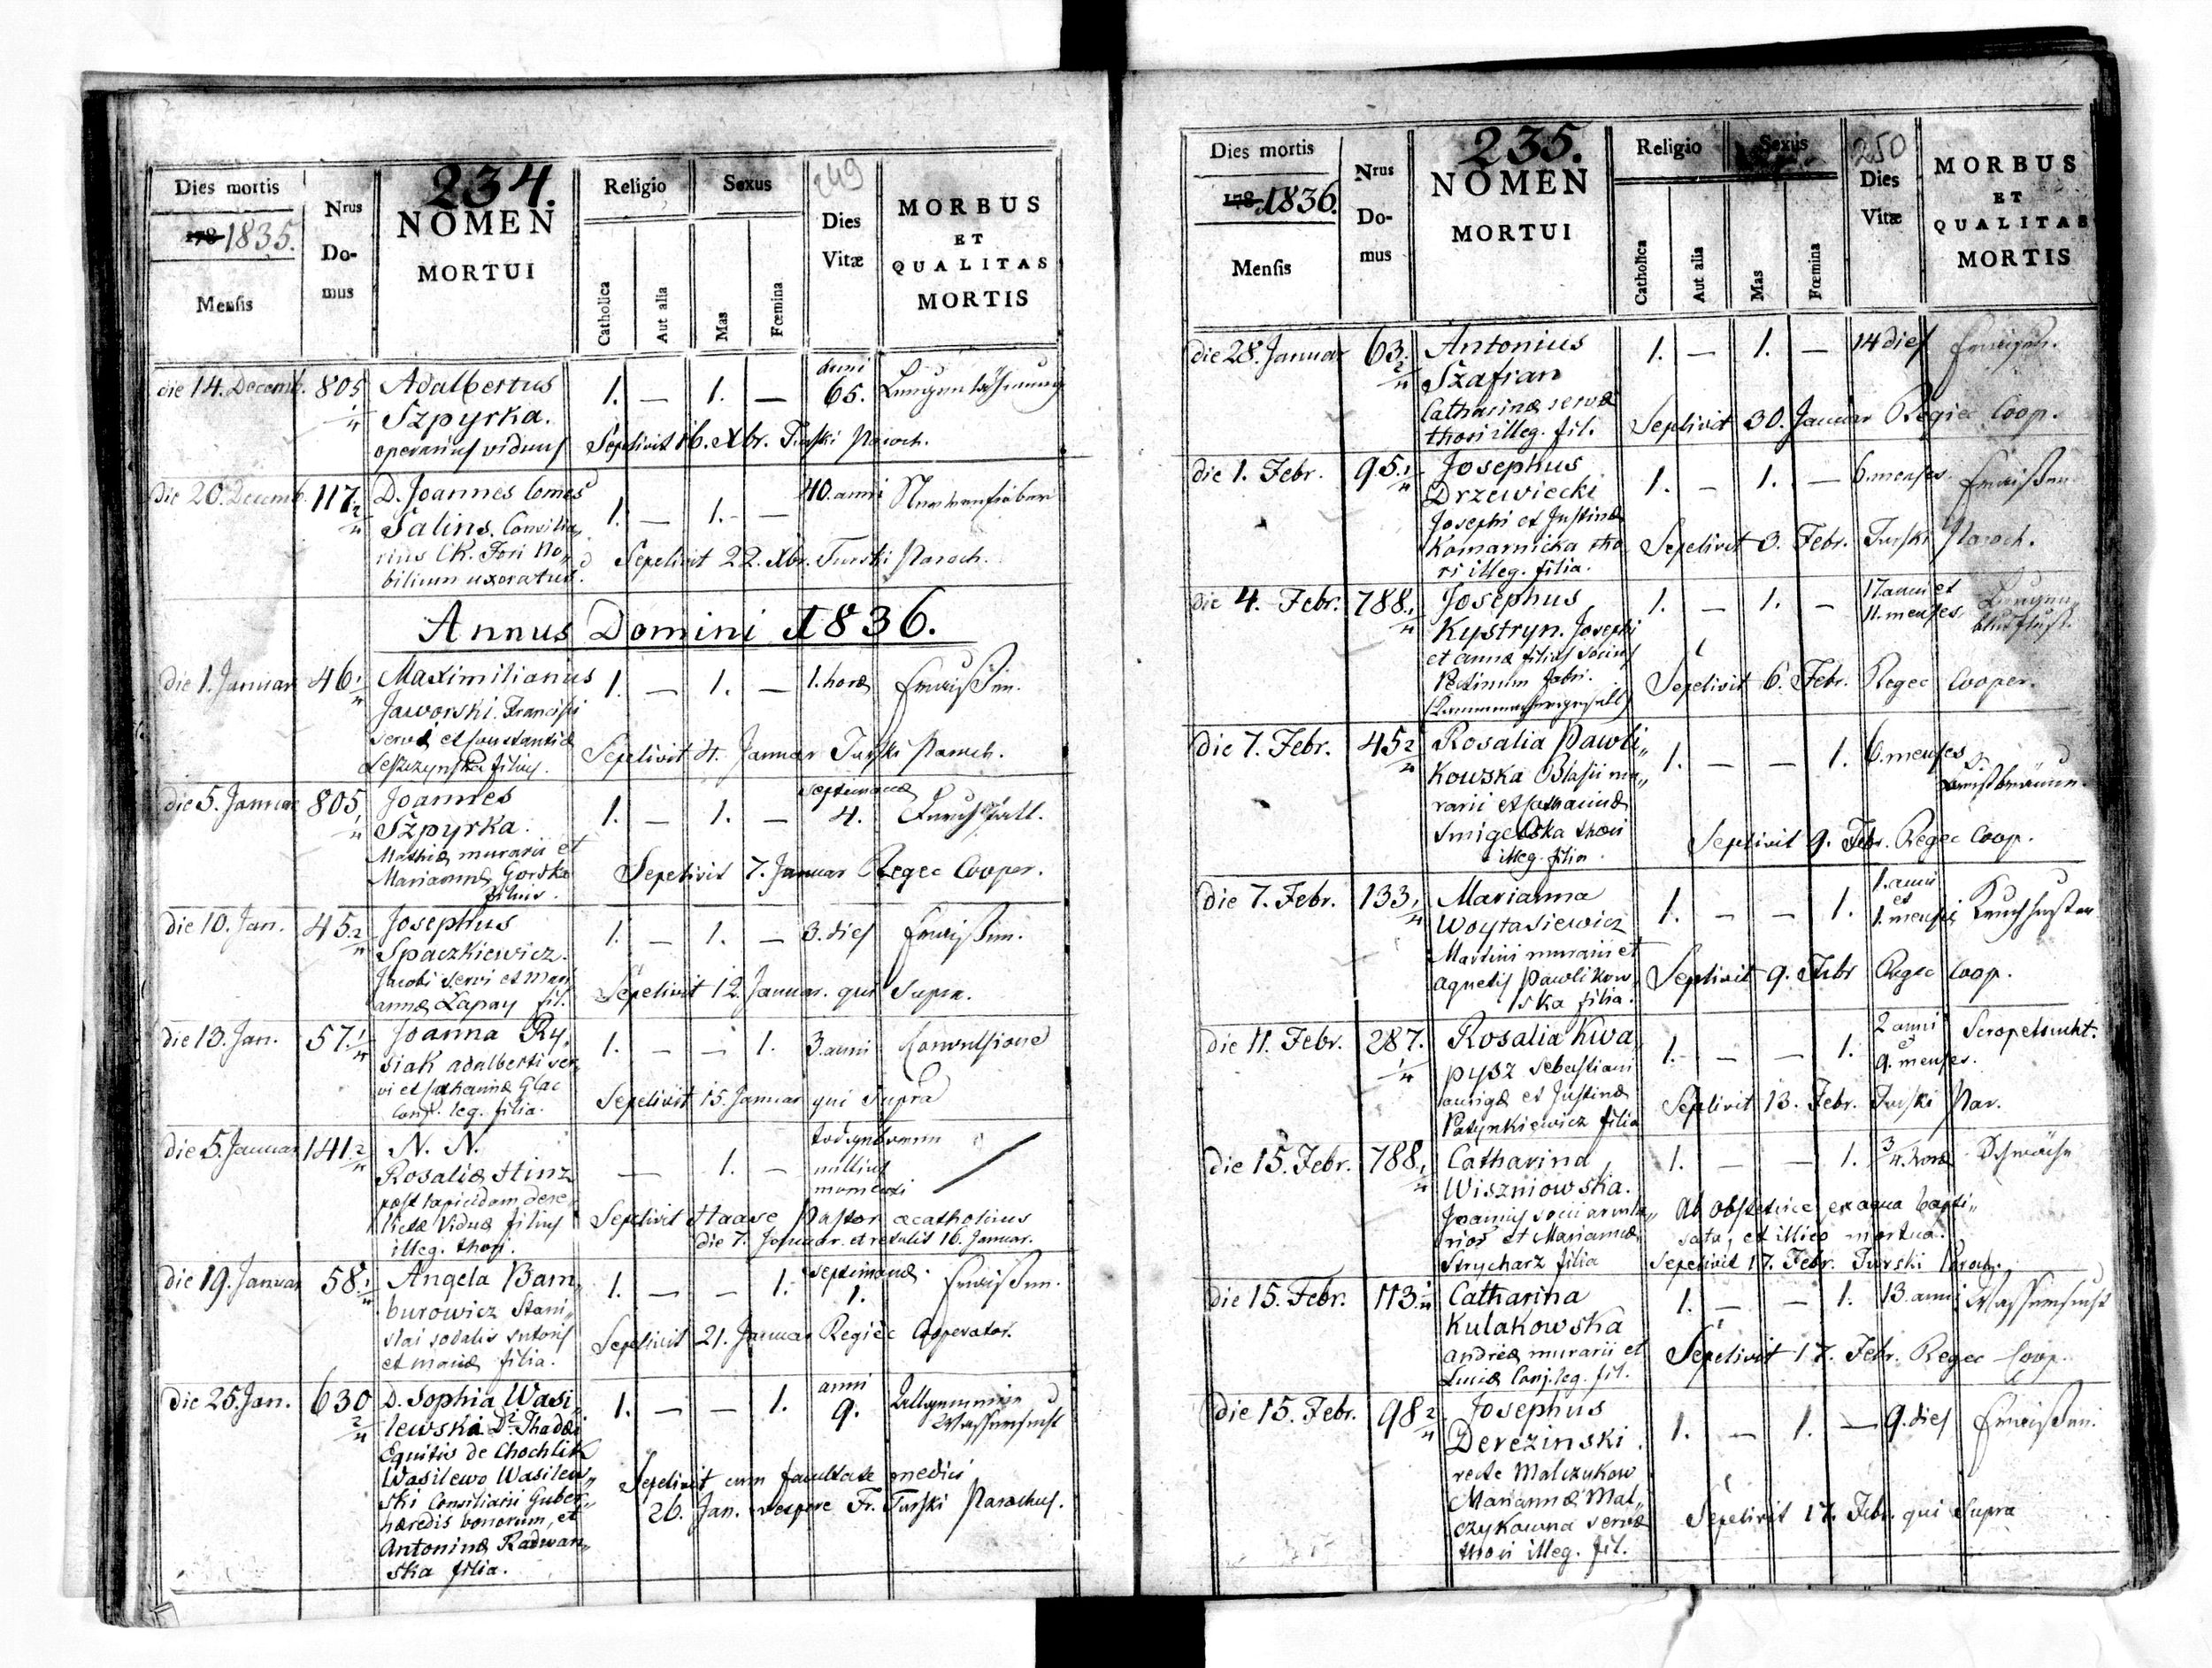 234.
249
Dies mortis
178 1835.
Mensis
Nrus
Do-
mus
NOMEN
MORTUI
Religio
Catholica
Aut alia
Sexus
Mas
Fœmina
Dies
Vitæ
MORBUS
ET
QUALITAS
MORTIS
die 14. Decemb. 805 1/4 Adalbertus 1. — 1. — anni 65. Lungenlähmung
Szpyrka.
operarius viduus Sepelivit 16. Xbr. Turski Paroch.
die 20. Decemb. 117 2/4 D. Joannes Comes 1. — 1. — 40. anni Nervenfieber
Salins. Consilia„
rius CK. Fori No„
bilium uxoratus. Sepelivit 22. Xbr. Turski Paroch.
Annus Domini 1836.
die 1. Januar 46 1/4 Maximilianus 1. — 1. — 1. hora Fraißen.
Jaworski. Francisci
servi et Constantiæ
Leszczynska filius. Sepelivit 4. Januar Turski Paroch.
die 5. Januar 805 1/4 Joannes 1. — 1. — septimanæ 4. Durchfall.
Szpyrka.
Mathiæ murarii et
Mariannæ Gorska
filius. Sepelivit 7. Januar Regec Cooper.
die 10. Jan. 45 2/4 Josephus 1. — 1. — 3. dies Fraißen.
Spaczkiewicz.
Jacobi servi et Mari
annæ Łapay fil. Sepelivit 12. Januar. qui supra.
die 13. Jan. 57. 1/4 Joanna Ry„ 1. — — 1. 3. anni Convulsione
siak Adalberti ser„
vi et Catharinæ Glac
Conj. leg. filia. Sepelivit 15. Januar qui supra
die 5. Januar 141 2/4 N. N. — 1. — todgeboren
Rosaliæ Hinz nullius
post lapicidam dere„ momenti
lictæ viduæ filius Sepelivit Haase Pastor acatholicus
illeg. thori. die 7. Januar. et retulit 16. Januar.
die 19. Januar 58. 1/4 Angela Bam„ 1. — — 1. septimana 1. Fraißen.
burowicz Stani„
slai sodalis sutoris
et Mariæ filia. Sepelivit 21. Januar Regiec Cooperator.
die 25. Jan. 630 2/4 D. Sophia Wasi„ 1. — — 1. anni 9. Allgemeine
lewska Di Thadæi Wassersucht
Equitis de Chochlik
Wasilewo Wasilew„
ski Consiliarii Guber„ Sepelivit cum facultate medici
hæredis bonorum, et 26. Jan. vespere Fr. Turski Parochus.
Antoninæ Radwan„
ska filia.
235.
250
Dies mortis
178 1836.
Mensis
Nrus
Do-
mus
NOMEN
MORTUI
Religio
Catholica
Aut alia
Sexus
Mas
Fœmina
Dies
Vitæ
MORBUS
ET
QUALITAS
MORTIS
die 28. Januar 63. 2/4 Antonius 1. — 1. — 14 dies Fraisen.
Szafran
Catharinæ servæ
thori illeg. fil. Sepelivit 30. Januar Regiec Coop.
die 1. Febr. 95. 1/4 Josephus 1. — 1. — 6. menses. Fraißen
Drzewiecki
Josephi et Justinæ
Komarnicka tho„
ri illeg. filia. Sepelivit 3. Febr. Turski Paroch.
die 4. Febr. 788. 1/4 Josephus 1. — 1. — 17. anni et 11. menses. Lungen
Kystryn. Josephi blutfluß.
et Annæ filius socius
Pectinum fabri. Sepelivit 6. Febr. Regec Cooper.
(Kammmachergesell)
die 7. Febr. 45 2/4 Rosalia Pawli„ 1. — — 1. 6. menses
kowska Blasii mu„
rarii et Catharinæ
Smigelska thori Sepelivit 9. Febr. Regec Coop.
illeg. filia.
die 7. Febr. 133. 1/4 Marianna 1. — — 1. 1. anni et 1. mensis Keuchhusten
Woytasiewicz
Martini murarii et
Agnetis Pawlikow„ Sepelivit 9. Febr Regec Coop.
ska filia.
die 11. Febr. 287. 1/4 Rosalia Kwa„ 1. — — 1. 2 anni et 9. menses. Scropelsucht.
pysz Sebastiani
aurigæ et Justinæ
Patynkiewicz filia Sepelivit 13. Febr. Turski Par.
die 15. Febr. 788. 1/4 Catharina 1. — — 1. 3/4. hora Schwäche
Wiszniowska.
Joannis socii armen„ Ab obstetrice ex aqua bapti„
rior et Mariannæ sata, et illico mortua.
Strycharz filia Sepelivit 17. Febr. Turski Paroch.
die 15. Febr. 113. 1/4 Catharina 1. — — 1. 13. anni Wassersucht
Kulakowska
Andreæ murarii et
Luciæ Conj. leg. fil. Sepelivit 17. Febr. Regec Coop.
die 15. Febr. 98 2/4 Josephus 1. — 1. — 9. dies Fraißen.
Derezinski.
recte Malczukow
Mariannæ Mal„
czykowna servæ Sepelivit 17. Febr. qui supra
thori illeg. fil.